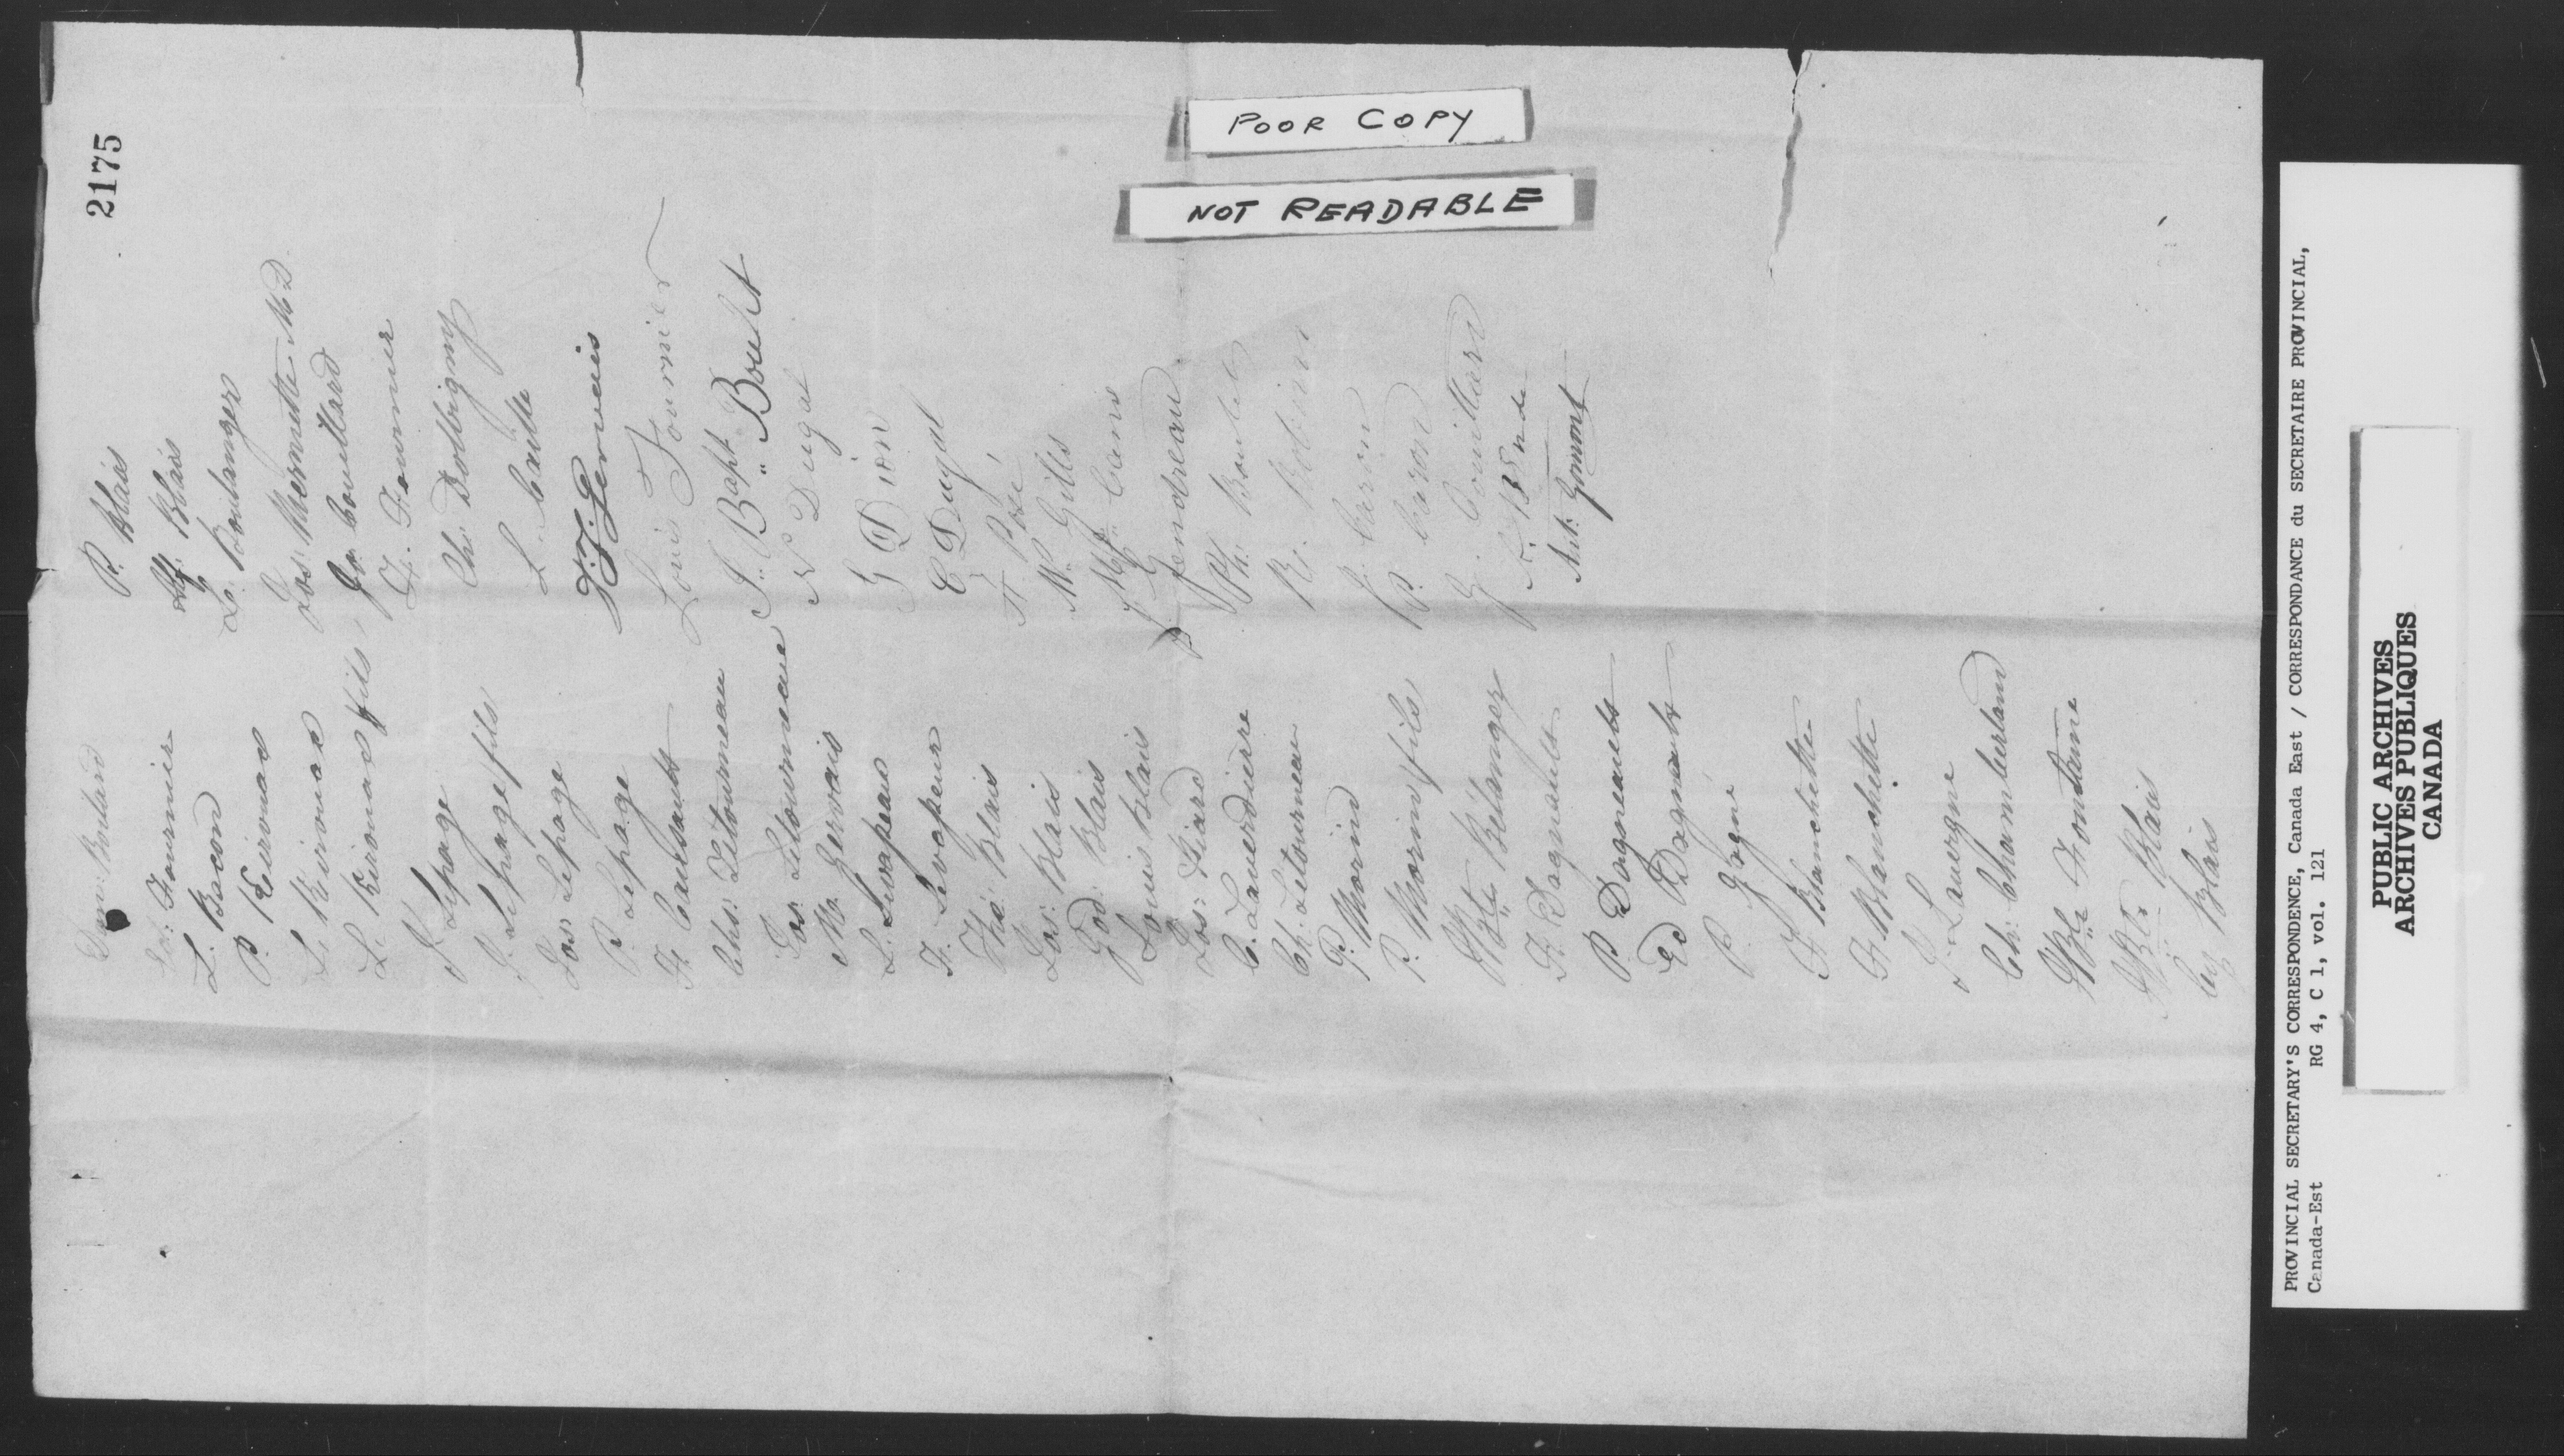 2175
POOR COPY
NOT READABLE
Fournier
L. Bacon
P. Kirouac
L. Kirouac
L. Kirouac fils
Lepage
Lepage fils
Jos: Lepage
P. Lepage
Chs: Létourneau
Jos: Letourneau
M. Gervais
L. Levasseur
F. Levasseur
Ths: Blais
Jos: Blais
God: Blais
Louis Blais
C. Laverdierre
Ch: Letourneau
P. Morin
P. Morin fils
JBte Bélanger
F. Dagneault
P. Dagneault
Ed Dagneault
P. Gagné
F Blanchette
F. Blanchette
J. Lavergne
Ch: Chamberland
JBte Fontaine
JBte Blais
Blais
P. Blais
Blais
L. Boulanger
Jos: Marmette MD.
Jos Couillard
F. Fournier
Ch: Dolbigny
Louis Fournier
J. Bapt Boulet
N Dugal
G Dion
E Dugal
W. Gills
Gendreau
Ph: Boulet
P. Caron
J. Couillard
PROVINCIAL SECRETARY'S CORRESPONDENCE, Canada East / CORRESPONDANCE du SECRETAIRE PROVINCIAL,
Canada-Est RG 4, C 1, vol. 121
PUBLIC ARCHIVES
ARCHIVES PUBLIQUES
CANADA